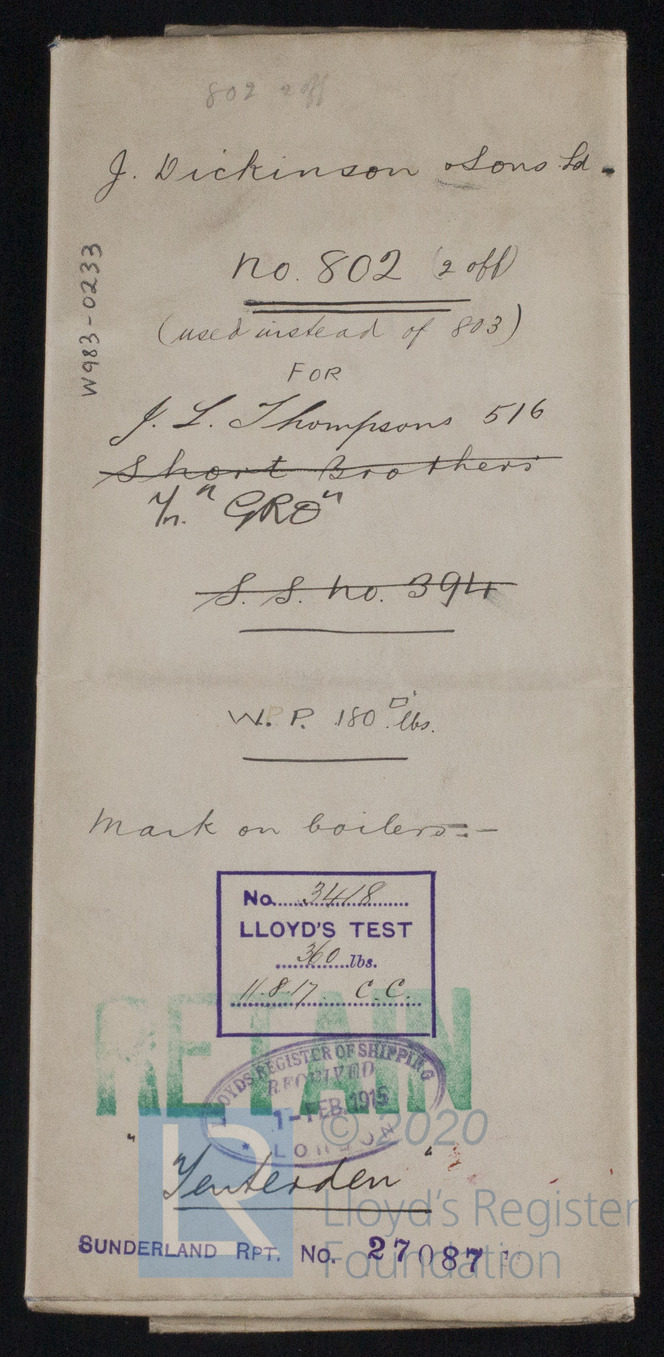 802 2 off
J. Dickinson & Sons Ld.
W983-0233
No. 802 (2 off)
(used instead of 803)
FOR
J. L. Thompsons 516
Short Brothers
"GRO"
S. S. No. 394
W. P. 180 □" lbs.
Mark on boilers:-
No. 3418
LLOYD'S TEST
360 lbs.
11-8-17 C.C.
RETAIN
LLOYDS REGISTER OF SHIPPING
RECEIVED
1-FEB.1915
LONDON
© 2020
"Tenterden"
LR
Lloyd's Register
Foundation
SUNDERLAND RPT. No. 27087